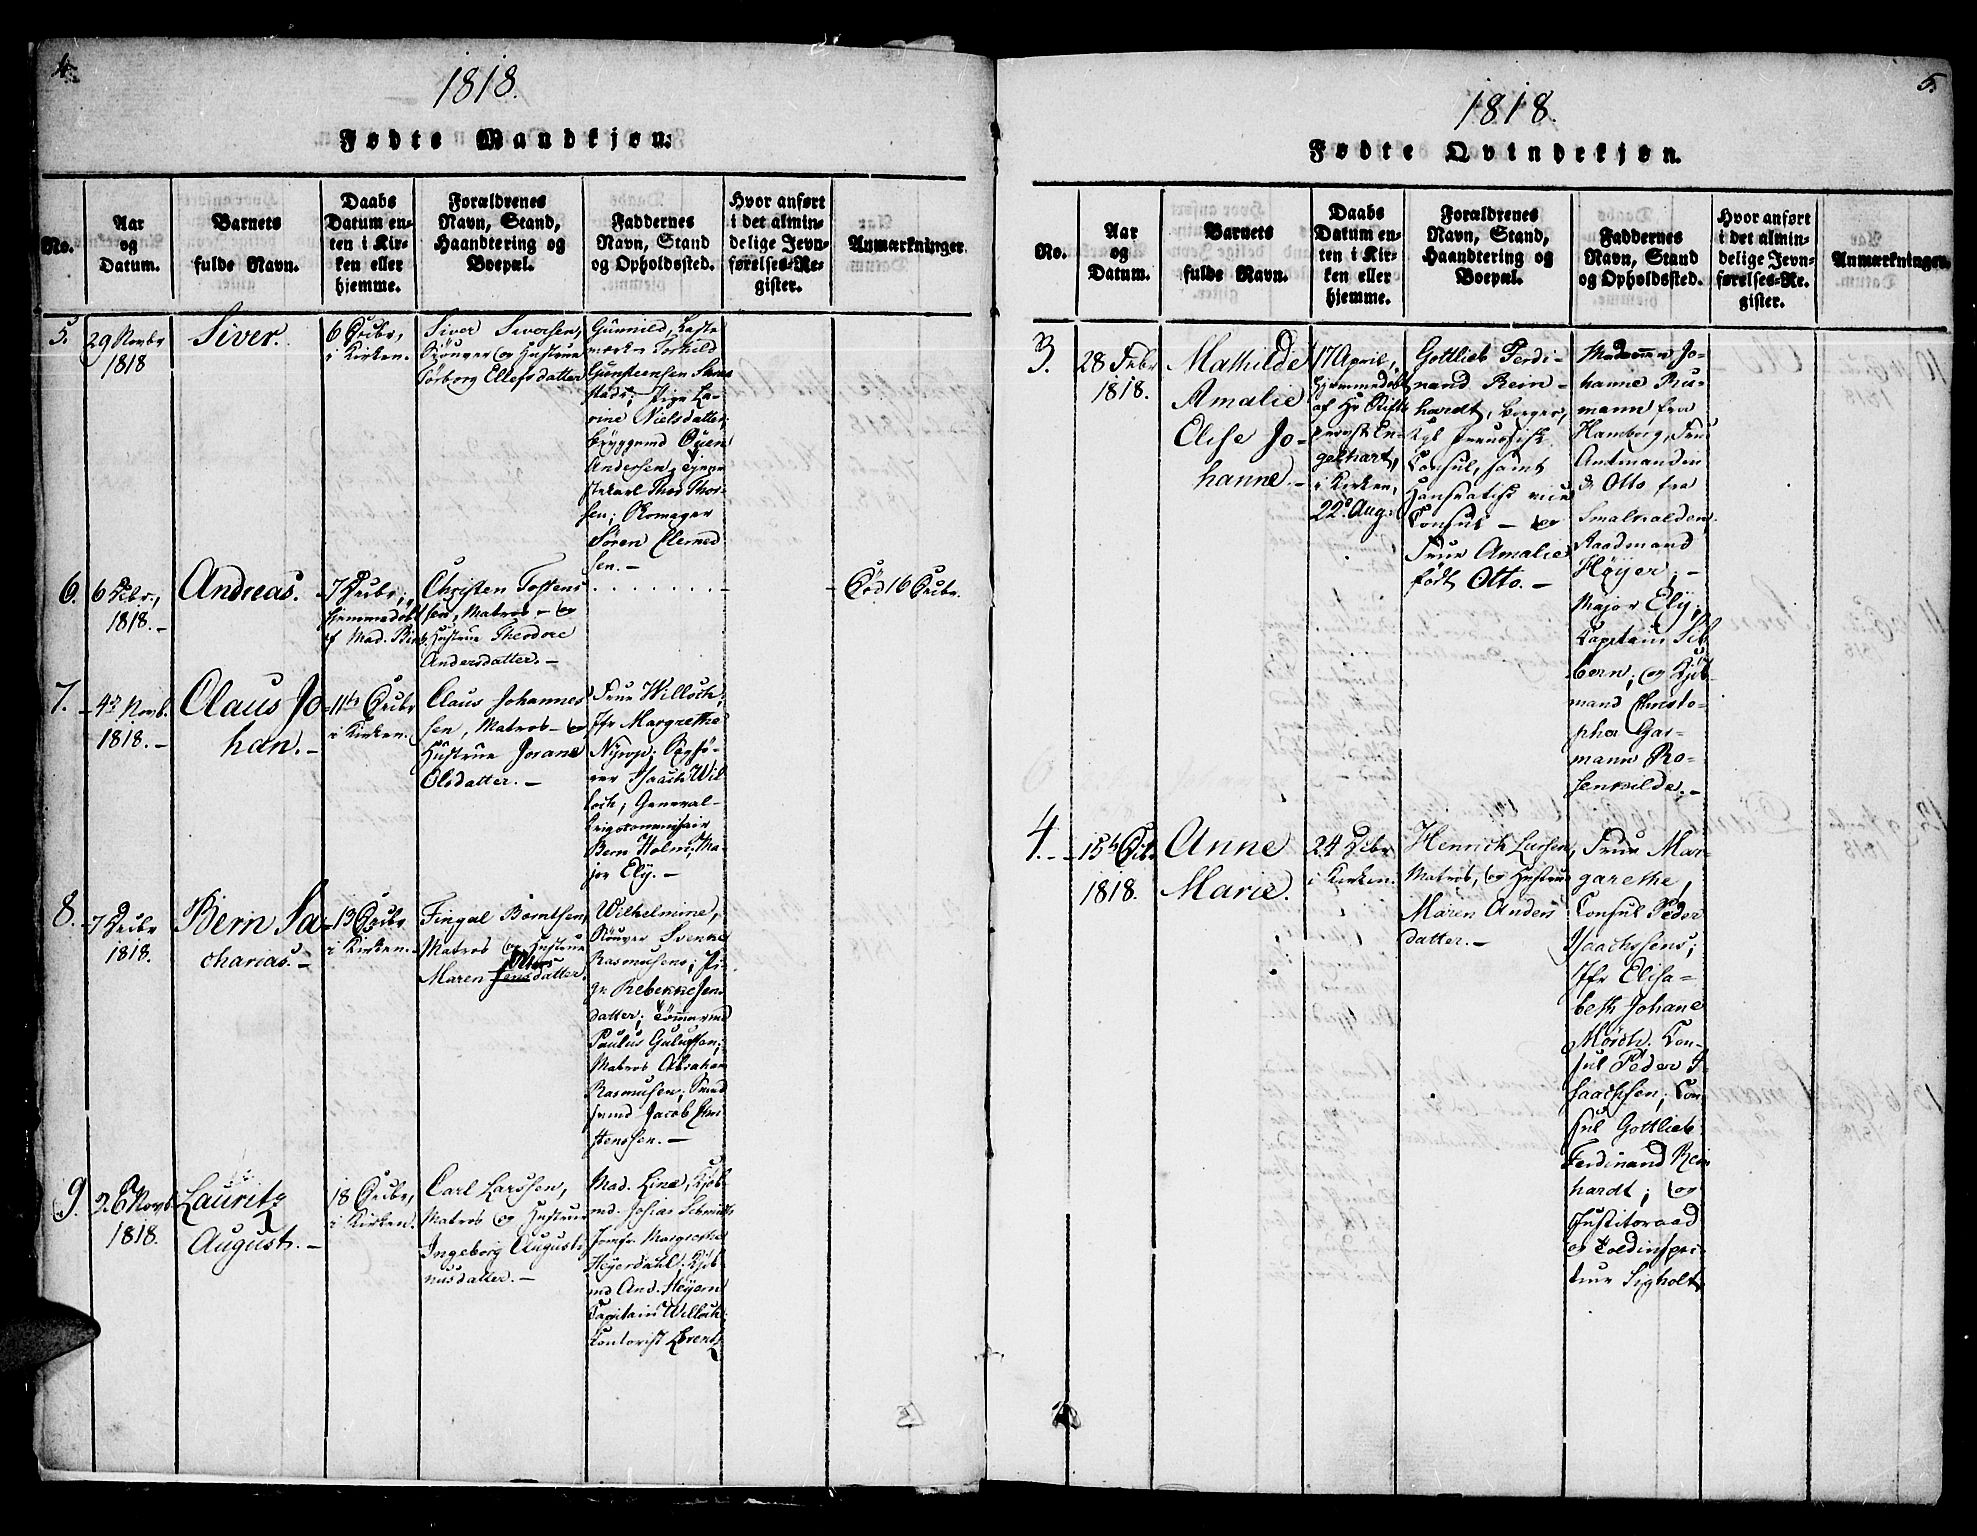 4.
1818.
Fødte Mandkjøn.
No.
Aar
og
Datum.
Barnets
fulde Navn.
Daabs
Datum en-
ten i Kir-
ken eller
hjemme.
Forældrenes
Navn, Stand,
Haandtering og
Boepæl.
Faddernes
Navn, Stand
og Opholdssted.
Hvor anført
i det almin-
delige Jevn-
førelses-Re-
gister.
Anmærkninger.
5.
29 Novbr
1818
Siver.
6 Decbr,
i Kirken.
Siver Siversen,
og Hustrue
Ellefsdatter
Gunnild,
Torkild
Gunstensen
Pige La-
vine Nielsdatter;
Bryggemd Ouen
Andersen;
Thor Thor-
sen; Skomager
Søren Clemed
sen.-
6.
6 Decbr,
1818.-
Andreas.
7 Decbr,
hjemmedøbt
af Mad.
Christen Tostens
sen, Matros- og
Hustrue Theodore
Andersdatter.-
Død 16 Decbr.
7.
4de Novb.
1818.-
Claus Jo-
han.-
11te Decbr
i Kirken.
Claus Johannes
sen, Matros- og
Hustrue Jorane
Olsdatter.-
Frue Willoch;
Jfr Margrethe
Nyrop;
Isaach Wil-
loch; General-
krigscommissair
Bern Holm; Ma-
jor Ely.-
8.
7 Decbr
1818.
Bern Sa-
charias.-
13 Decbr
i Kirken.
Fingal Berntsen,
Matros og Hustrue
Maren Jensdatter.
Wilhelmine,
Svenke
Rasmusens; Pi-
ge Rebekke Jens
datter; Tømmermd
Paulus Gulufsen;
Matros Abraham
Rasmusen;
Jacob Chri-
stensen.-
9.
26 Novb
1818.
Lauritz
August.-
18 Decbr,
i Kirken.
Carl Larssen,
Matros og Hustrue
Ingeborg Augusti-
nusdatter.-
Mad. Line, Kjøb-
md. Josias Schmidts
Jomfr Margrethe
Heyerdahl; Kjøb
md And. Heyern
Capitain Willoch;
Contorist Lorentz
5.
1818.
Fødte Qvindekjøn.
No.
Aar
og
Datum.
Barnets
fulde Navn.
Daabs
Datum en-
ten i Kir-
ken eller
hjemme.
Forældrenes
Navn, Stand,
Haandtering og
Boepæl.
Faddernes
Navn, Stand
og Opholdssted.
Hvor anført
i det almin-
delige Jevn-
førelses-Re-
gister.
Anmærkninger.
3.
28 Febr
1818.
Mathilde
Amalie
Elise Jo-
hanne.-
17 April,
hjemmedøbt
af Hr Stifts
provst En-
gelhart,
i Kirken,
22de Aug.
Gottlieb Ferdi-
nand Rein-
hardt, Borger,
Kgl Preussisk
Consul, samt
Hanseatisk vice
Consul - og
Frue Amalie
født Otto.-
Madamen Jo-
hanne Ru-
mann fra
Hamborg, Frue
Amtmandin
Otto fra
Smalkalden,
Raadmand
Høyer;-
Major Ely;
Capitain Sib-
bern; og Kjøb-
mand Christo-
pher Gar-
mann Ro-
senkilde.-
4.
15de Octbr
1818.
Anne
Marie.
24 Decbr
i Kirken.
Henrich Larsen,
Matros, og Hustrue
Maren Anders
datter.-
Frue Mar-
garethe,
Consul Peder
Isaachsens;
Jfr Elisa-
beth Johane
Mørch. Con-
sul Peder I-
saachsen; Con-
sul Gottlieb
Ferdinand Rein
hardt; og
Justitsraad
og Toldinspec-
teur Sigholt.